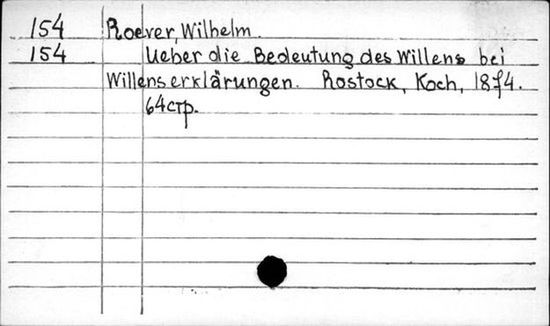 154 Roever, Wilhelm.
154 Ueber die Bedeutung des Willens bei
Willenserklärungen. Rostock, Koch, 1874.
64стр.